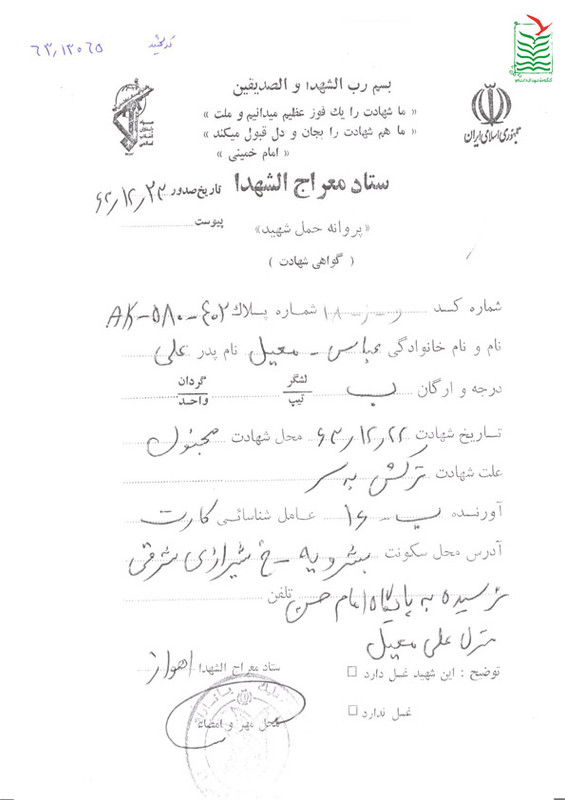 ۶۳٫۱۳۰۶۵
بسم رب الشهدا و الصدیقین
« ما شهادت را یك فوز عظیم میدانیم و ملت »
« ما هم شهادت را بجان و دل قبول میکند »
« امام خمینی »
جمهوری اسلامی ایران
ستاد معراج الشهدا
تاریخ صدور ۶۳٫۱۲٫۲۳
پیوست
«پروانه حمل شهید»
( گواهی شهادت )
شماره کد و-ز-۱۸ شماره پلاك AK-۵۸۰-۴۰۲
نام و نام خانوادگی عباس - معیل نام پدر علی
درجه و ارگان ب لشگر تیپ گردان واحد
تاریخ شهادت ۶۳٫۱۲٫۲۲ محل شهادت مجنون
علت شهادت ترکش به سر
آورنده ب-۱۶ عامل شناسائی کارت
آدرس محل سکونت بشرویه - خ شیرازی شرقی
نرسیده به پایگاه امام حسن تلفن
منزل علی معیل
توضیح : این شهید غسل دارد
ستاد معراج الشهدا اهواز
غسل ندارد
محل مهر و امضاء